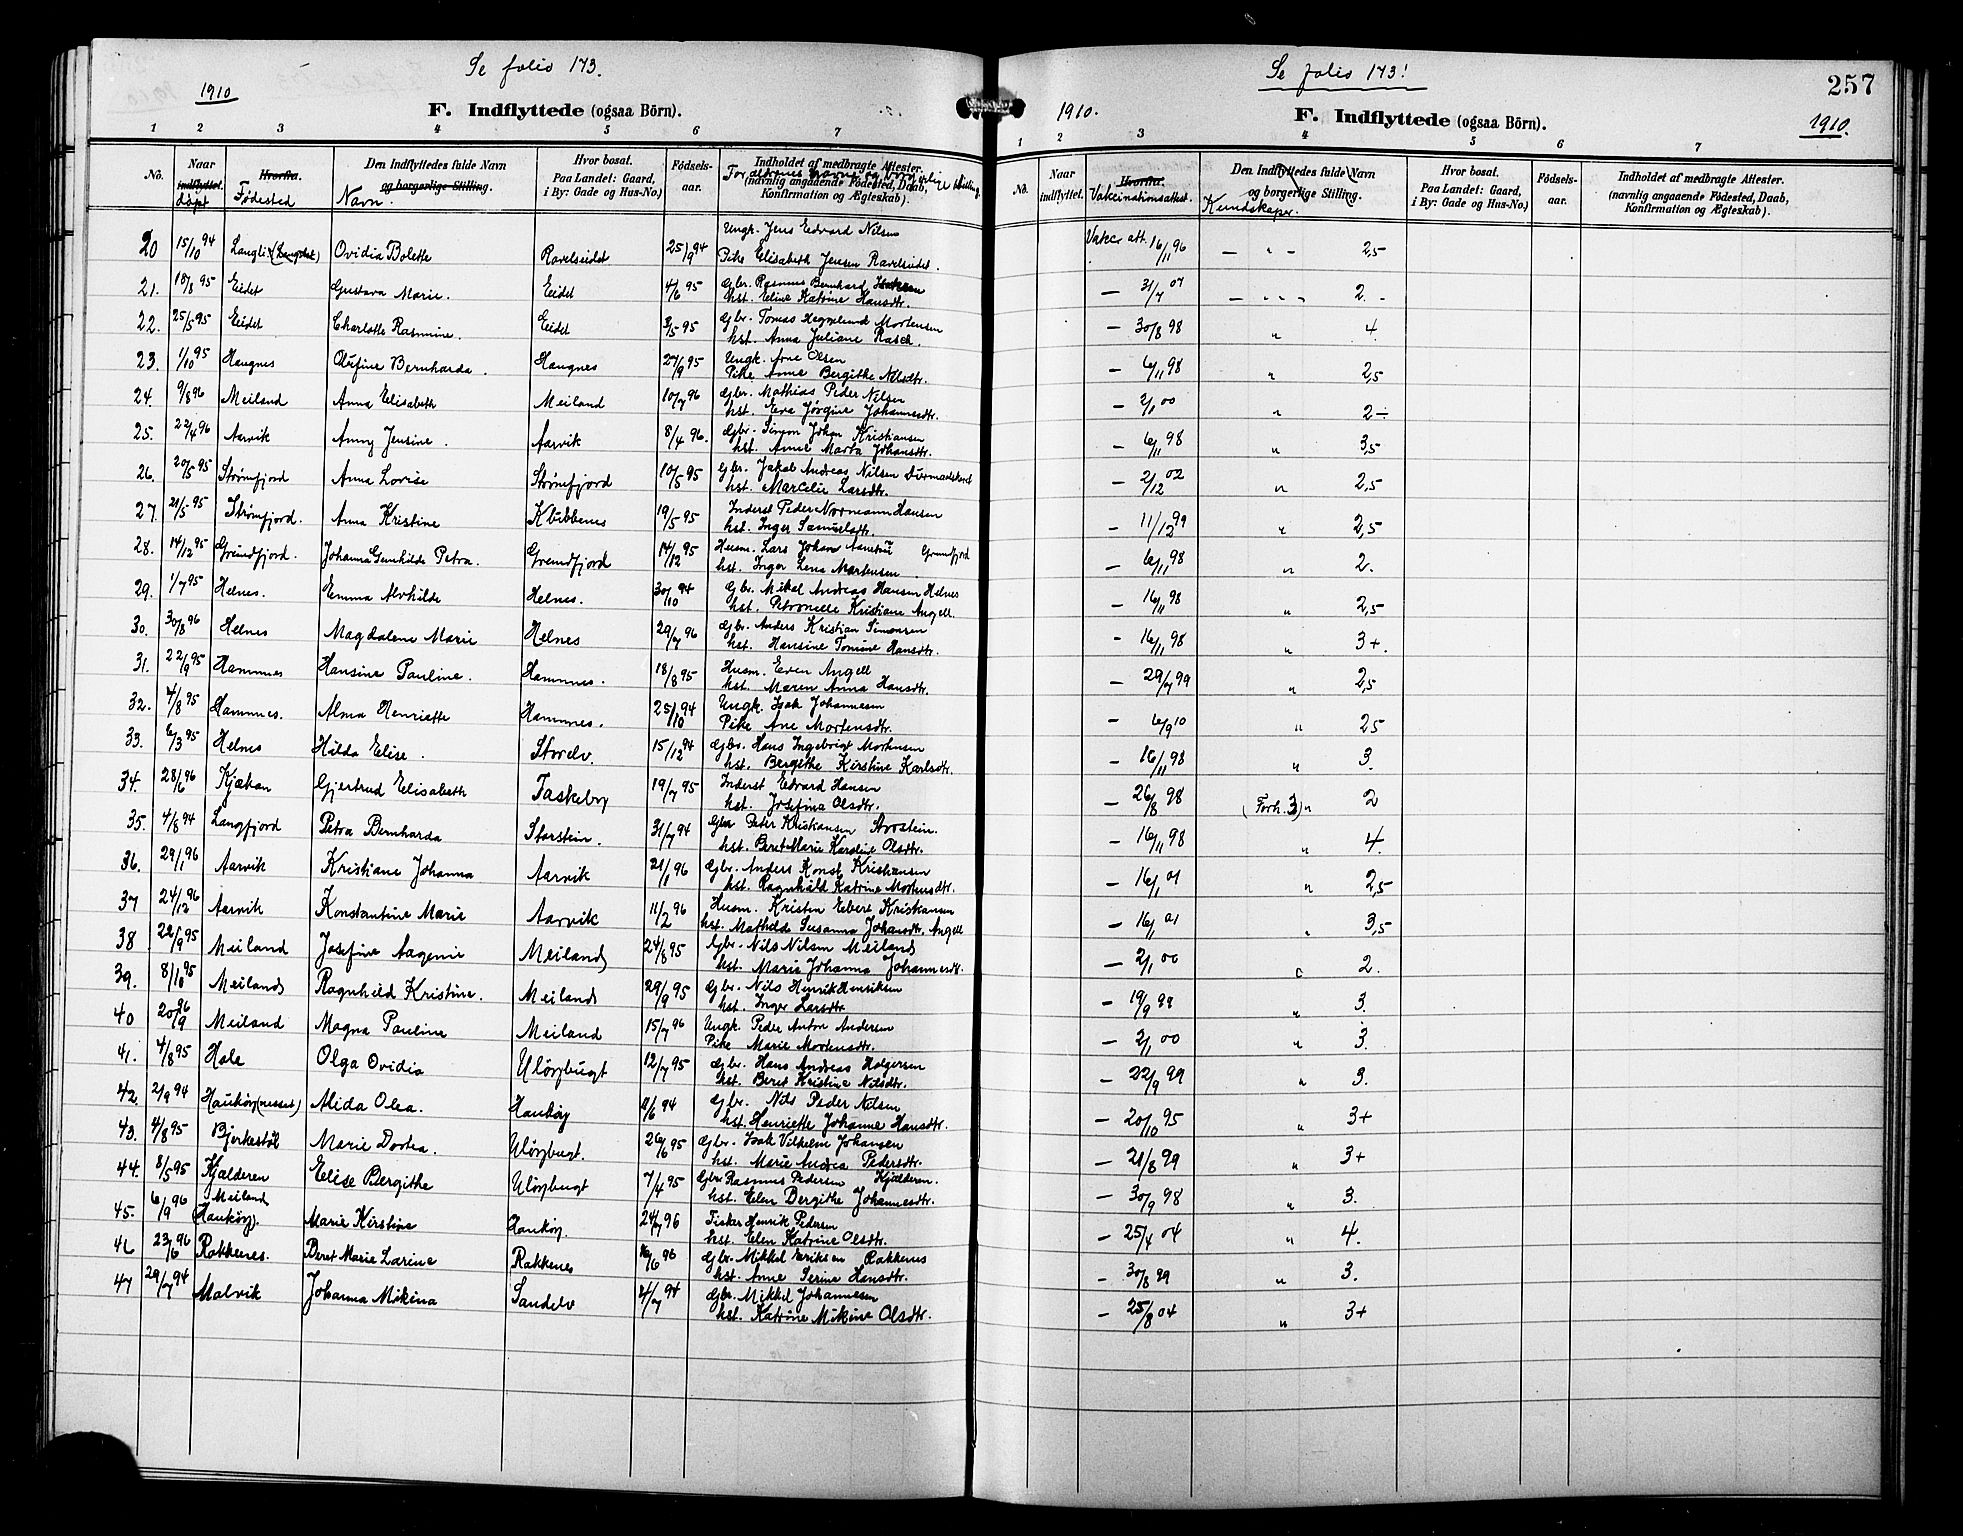 Se folio 173.
1910
F. Indflyttede (ogsaa Börn).
1 2 3 4 5 6 7
No. Naar indflyttet. döpt Hvorfra. Födested Den Indflyttedes fulde Navn og borgerlige Stilling. Navn. Hvor bosat. Paa Landet: Gaard, i By: Gade og Hus-No.) Fødsels-aar. Indholdet af medbragte Attester. (navnlig angaaende Födested, Daab, Konfirmation og Ægteskab). Forældrenes navne og borgerlige stilling
20 15/10 94 Langli (Langslet) Ovidia Bolette Ravelseidet 25/9 94 Ungk. Jens Edvard Nilsen
Pike Elisabeth Jensen Ravelseidet.
21. 18/8 95 Eidet Gustava Marie. Eidet 4/6 95 Gbr. Rasmus Bernhard Isaksen
hst. Eline Katrine Hansdtr.
22. 25/5 95 Eidet Charlotte Rasmine. Eidet 3/5 95 Gbr. Tomas Heggelund Mortensen
hst. Anna Juliane Rasch.
23. 1/10 95 Haugnes Olufine Bernharda. Haugnes 27/9 95 Ungk. Arne Olsen
Pike Anne Bergithe Nilsdtr.
24. 9/8 96 Meiland Anna Elisabeth Meiland 10/7 96 Gbr. Mathias Peder Nilsen
hst. Eva Jørgine Johannesdtr.
25. 22/4 96 Aarvik Anny Jensine. Aarvik 8/4 96. Gbr. Simon Johan Kristiansen
hst. Anne Marta Johansdtr.
26. 20/5 95 Strömfjord Anna Lovise Strömfjord 10/5 95 Gbr. Jakob Andreas Nilsen
hst. Marcelie Larsdtr.
27. 21/5 95 Strömfjord. Anna Kristine Klubbenes 19/5 95 Inderst Peder Normann Hansen
hst. Inger Samuelsdtr.
28. 14/12 95 Grundfjord. Johanna Gunhilde Petra. Grundfjord 14/12 95 Husm. Lars Johan Grundfjord
hst. Inger Lena Martensen.
29. 1/7 95 Helnes. Emma Alvhilde Helnes. 30/10 94 Gbr. Mikal Andreas Hansen Helnes
hst. Petronelle Kristiane Angell.
30. 30/8 96 Helnes Magdalene Marie Helnes 29/7 96 Gbr. Anders Kristian Simonsen
hst. Hansine Tomine Hansdtr.
31. 22/9 95 Hamnes Hansine Pauline. Hamnes. 18/8 95 Husm. Even Angell
hst. Maren Anna Hansdtr.
32. 4/8 95 Hamnes. Alma Henriette Hamnes. 25/10 94 Ungk. Isak Johannesen
Pike Ane Mortensdtr.
33. 6/3 95 Helnes Hilda Elise. Storelv. 15/12 94 Gbr. Hans Ingebrigt Mortensen
hst. Bergithe Kirstine Karlsdtr.
34. 28/6 96 Kjækan Gjertrud Elisabeth Taskeby 19/7 95 Inderst Edvard Hansen
hst. Josefina Olsdtr.
35. 4/8 94 Langfjord Petra Bernharda Storstein. 31/7 94 Gbr. Peter Kristiansen Storstein.
hst. Beret Marie Karoline Olsdtr.
36. 29/1 96 Aarvik Kristiane Johanna Aarvik 21/1 96 Gbr. Anders Konst. Kristiansen
hst. Ragnhild Katrine Mortensdtr.
37 24/12 96 Aarvik Konstantine Marie Aarvik 11/2 96 Husm. Kristen Ebert Kristiansen
hst. Mathilde Susanna Johansdtr. Angell
38 22/9 95 Meiland Josefine Aagenie Meiland 24/8 95 Gbr. Nils Nilsen Meiland
hst. Marie Johanna Johannesdtr.
39. 8/10 95 Meiland Ragnhild Kristine. Meiland 29/9 95 Gbr. Nils Henrik Henriksen
hst. Inger Larsdtr
40 20/9 96 Meiland Magna Pauline Meiland 15/7 96 Ungk. Peder Anton Andersen
Pike Marie Mortensdtr.
41. 4/8 95 Hala Olga Ovidia Ulöybugt 12/7 95 Gbr. Hans Andreas Holgersen
hst. Beret Kristine Nilsdtr.
42. 2/9 94 Hauköy (nesset) Alida Olea. Hauköy 11/6 94 Gbr. Nils Peder Nilsen
hst. Henriette Johanne Hansdtr.
43. 4/8 95 Bjerkestöl Marie Dortea. Ulöybugt. 26/6 95 Gbr. Isak Vilhelm Johansen
hst. Marie Andrea Pedersdtr.
44. 8/5 95 Kjælderen Elise Bergithe Ulöybugt 7/4 95 Gbr. Rasmus Pedersen Kjælderen.
hst. Elen Bergithe Johannesdtr.
45. 6/9 96 Meiland (Hauköy). Marie Kirstine Hauköy. 24/7 96 Fisker Henrik Pedersen
hst. Elen Katrine Olsdtr.
46 23/6 96 Rakkenes. Beret Marie Larine Rakkenes 16/6 96 Gbr. Mikkel Eriksen Rakkenes
hst. Anne Serine Hansdtr.
47 29/7 94 Malvik Johanna Mikina Sandelv 4/7 94 Gbr. Mikkel Johannesen
hst. Katrine Mikine Olsdtr.
Se folio 173!
257
1910.
F. Indflyttede (ogsaa Börn).
1910.
1 2 3 4 5 6 7
No. Naar indflyttet. Hvorfra. Vakcinationsattest. Den Indflyttedes fulde Navn og borgerlige Stilling. Kundskaper. Hvor bosat. Paa Landet: Gaard, i By: Gade og Hus-No.) Fødsels-aar. Indholdet af medbragte Attester. (navnlig angaaende Födested, Daab, Konfirmation og Ægteskab).
Vakc. att. 16/11 96 — " — 2,5
— 31/7 07 — " " " 2. -
— 30/8 98 " 4.
— 6/11 98 " 2,5
— 2/1 00 " 2÷
— 6/11 98 " 3,5
— 2/12 02 " 2,5
— 11/12 99 " 2,5
— 6/11 98 " 2.
— 16/11 98 " 2,5
— 16/11 98 " 3+.
— 29/7 99 " 2,5
— 6/9 10 " 2,5
— 16/11 98 " 3.
— 26/8 98 (Forh. 3) " 2
— 16/11 98 " 4.
— 16/1 01 " 2,5
— 16/1 01 " 3,5
— 2/1 00 " 2.
— 19/9 99 " 3.
— 2/1 00 " 3.
— 22/9 99 " 3.
— 20/10 95 " 3+
— 21/8 99 " 3+
— 30/9 98 " 3.
— 25/4 04 " 4.
— 30/8 99 " 3.
— 25/8 04 " 3+